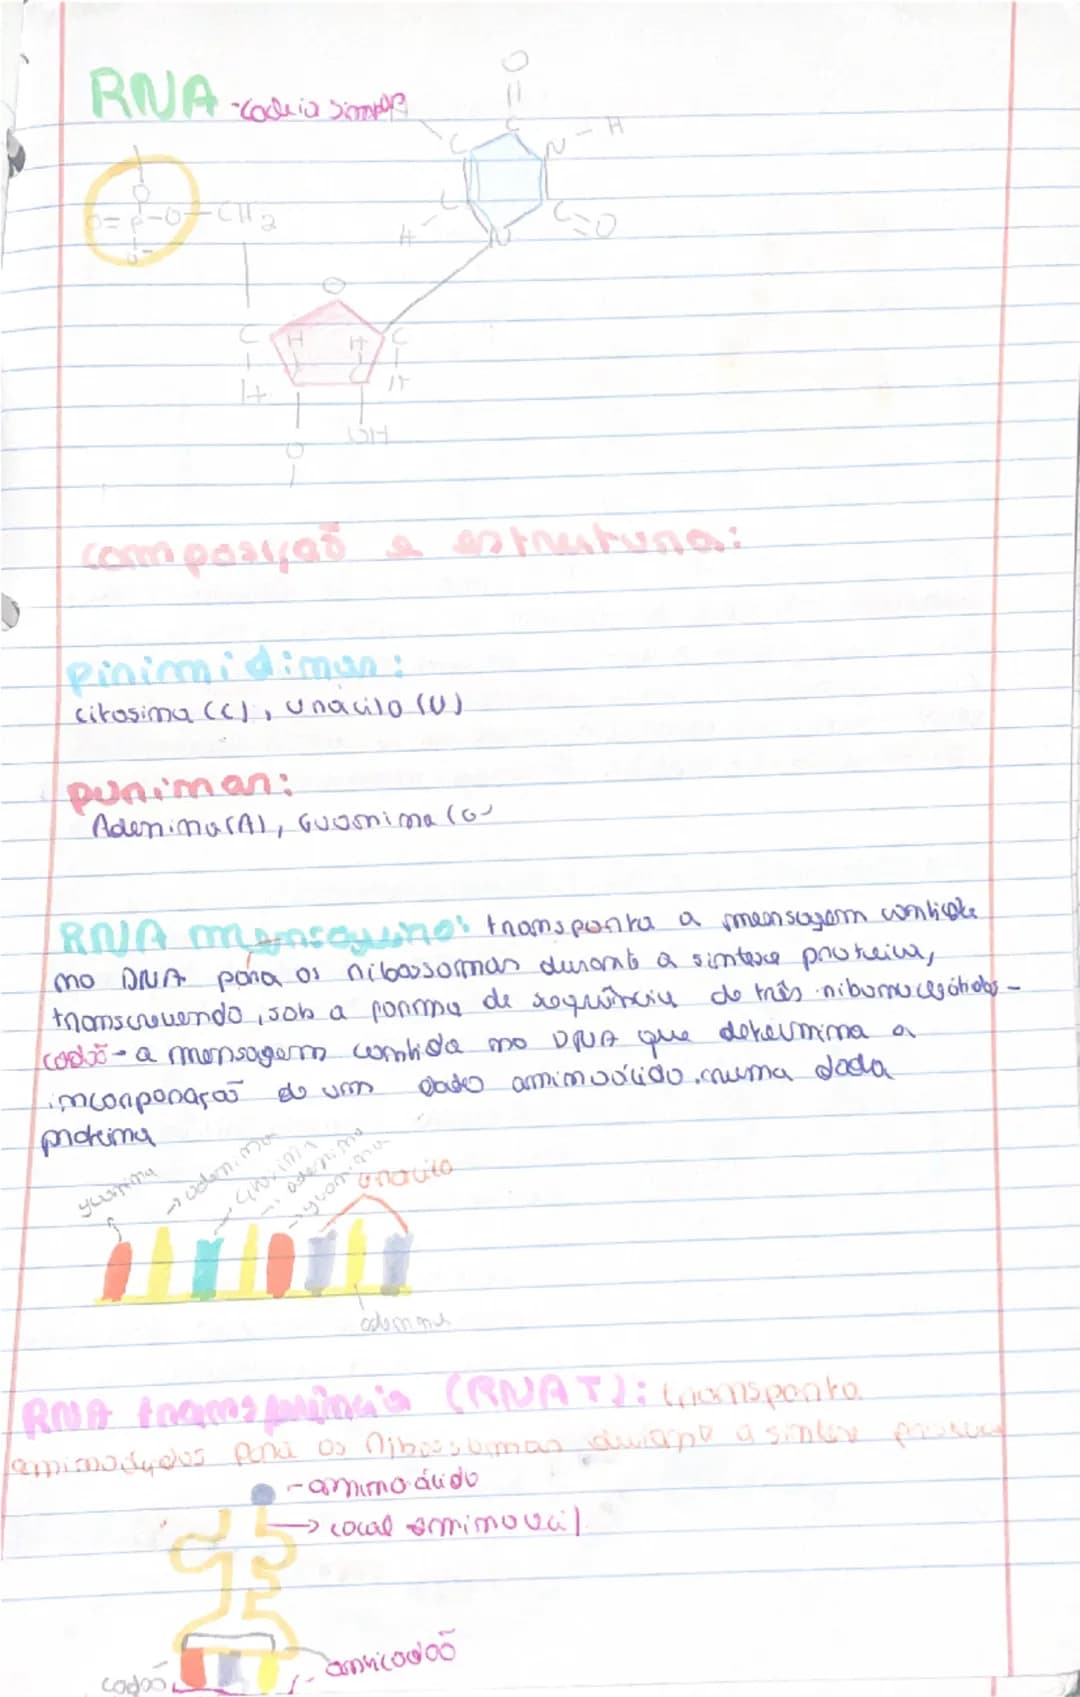 RNA - Cadeia simples
O
C
C N - H
O
O= P -O- CH2
O-
C
H
N
C=O
O
C H H C
H H
OH
O
composição e estrutura:
pirimidinas:
citosina (C), Uracilo (U)
purinas:
Adenina (A), Guanina (G
RNA mensageiro: transporta a mensagem contida
no DNA para os ribossomas durante a síntese proteica,
transcrevendo, sob a forma de sequência de três ribonucleótidos -
codão - a mensagem contida no DNA que determina a
incorporação de um dado aminoácido numa dada
proteína
guanina → adenina citosina adenina → guanina uracilo
adenina
RNA transferência (RNAT): transporta
aminoácidos para os ribossomas durante a síntese proteica
- aminoácido
→ local aminoacil
codão anticodão